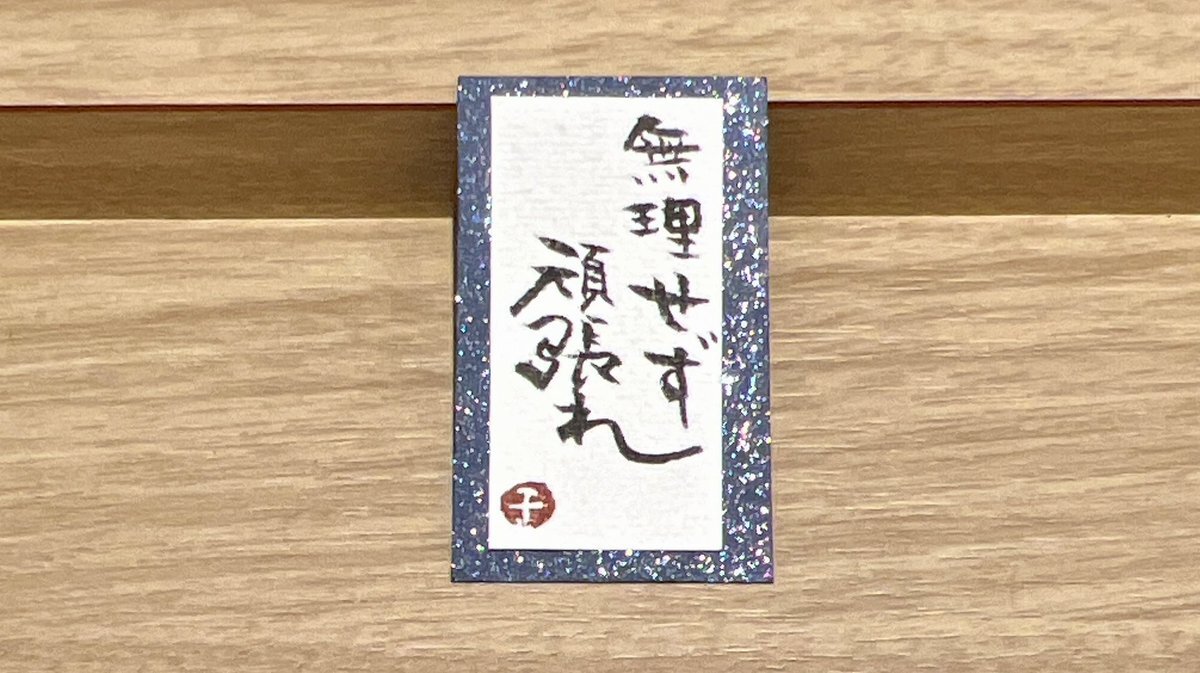 無理せず
頑張れ
千